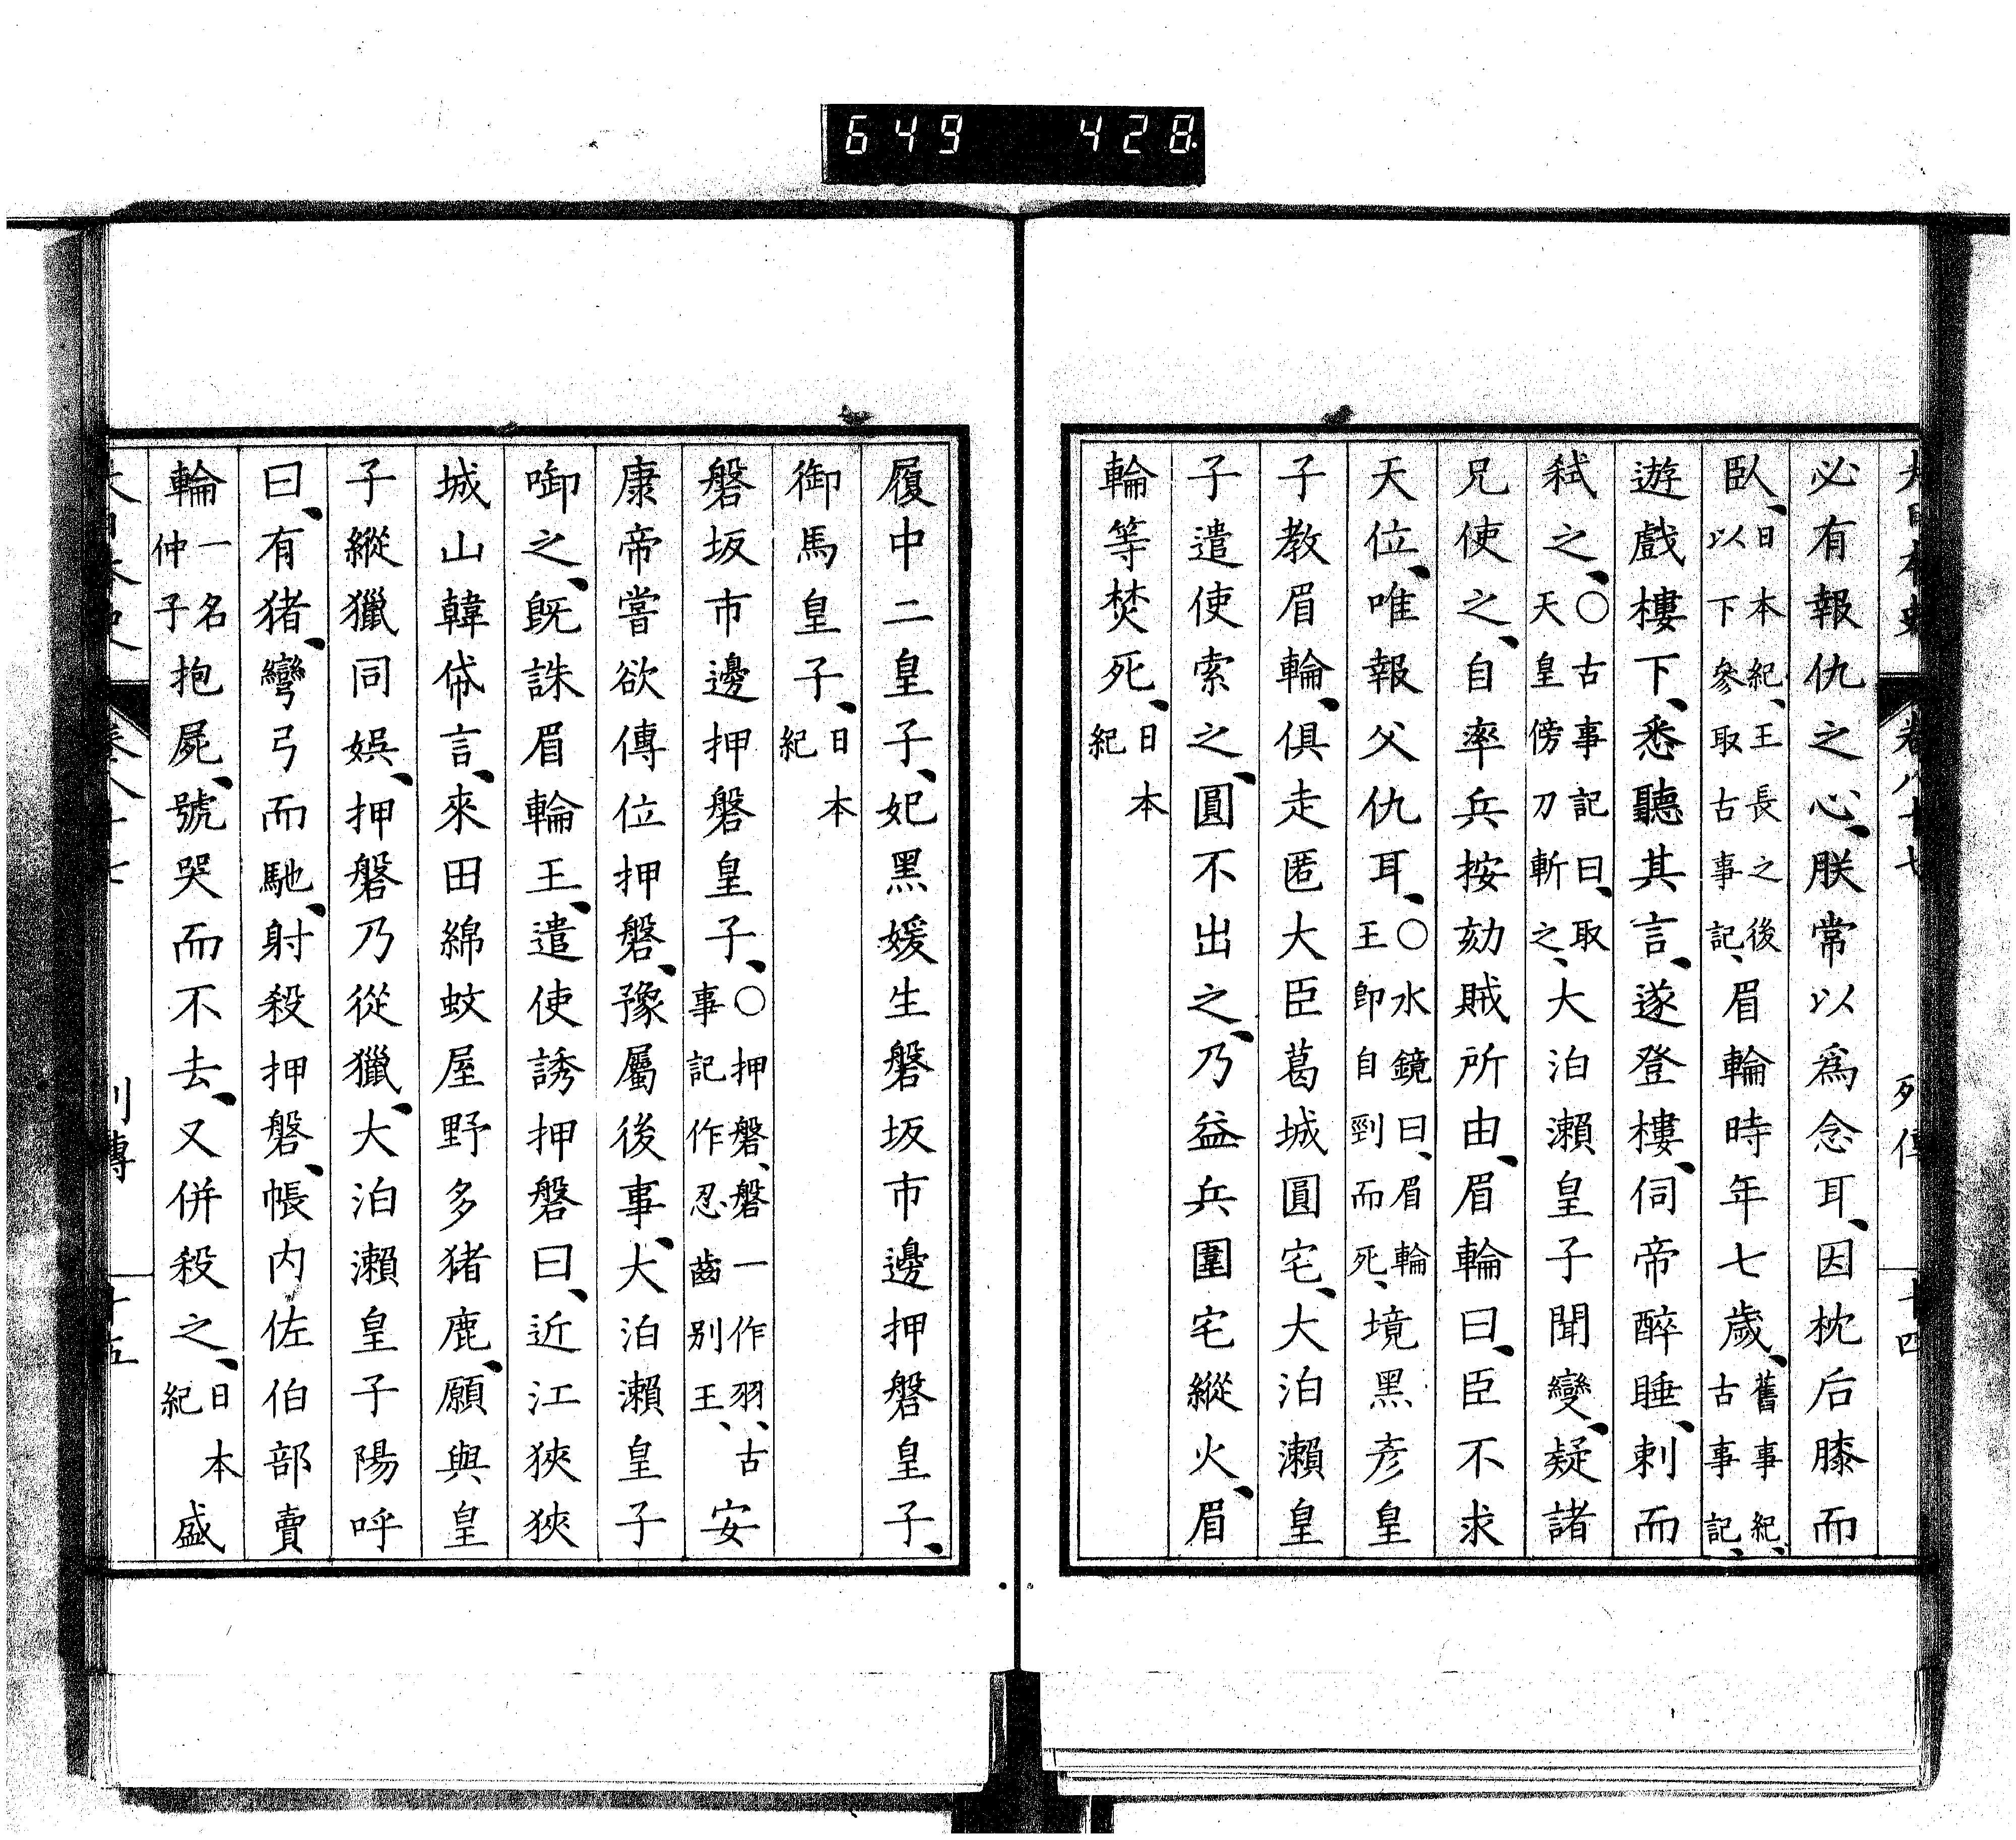 649 428
大日本史 卷八十七 列傳 十四
必有報仇之心、朕常以爲念耳、因枕后膝而
臥、日本紀、王長之後以下參取古事記、眉輪時年七歲、舊事紀、古事記、
遊戲樓下、悉聽其言、遂登樓、伺帝醉睡、刺而
弑之、〇古事記曰、取天皇傍刀斬之、大泊瀨皇子聞變、疑諸
兄使之、自率兵按劾賊所由、眉輪曰、臣不求
天位、唯報父仇耳、〇水鏡曰、眉輪王卽自剄而死、境黑彥皇
子教眉輪、俱走匿大臣葛城圓宅、大泊瀨皇
子遣使索之、圓不出之、乃益兵圍宅縱火、眉
輪等焚死、日本紀
履中二皇子、妃黑媛生磐坂市邊押磐皇子、
御馬皇子、日本紀
磐坂市邊押磐皇子、〇押磐、磐一作羽、古事記作忍齒別王、安
康帝嘗欲傳位押磐、豫屬後事、大泊瀨皇子
啣之、既誅眉輪王、遣使誘押磐曰、近江狹狹
城山韓帒言、來田綿蚊屋野多猪鹿、願與皇
子縱獵同娛、押磐乃從獵、大泊瀨皇子陽呼
曰、有猪、彎弓而馳、射殺押磐、帳内佐伯部賣
輪一名仲子抱屍、號哭而不去、又併殺之、日本紀盛
大日本史 卷八十七 列傳 十五